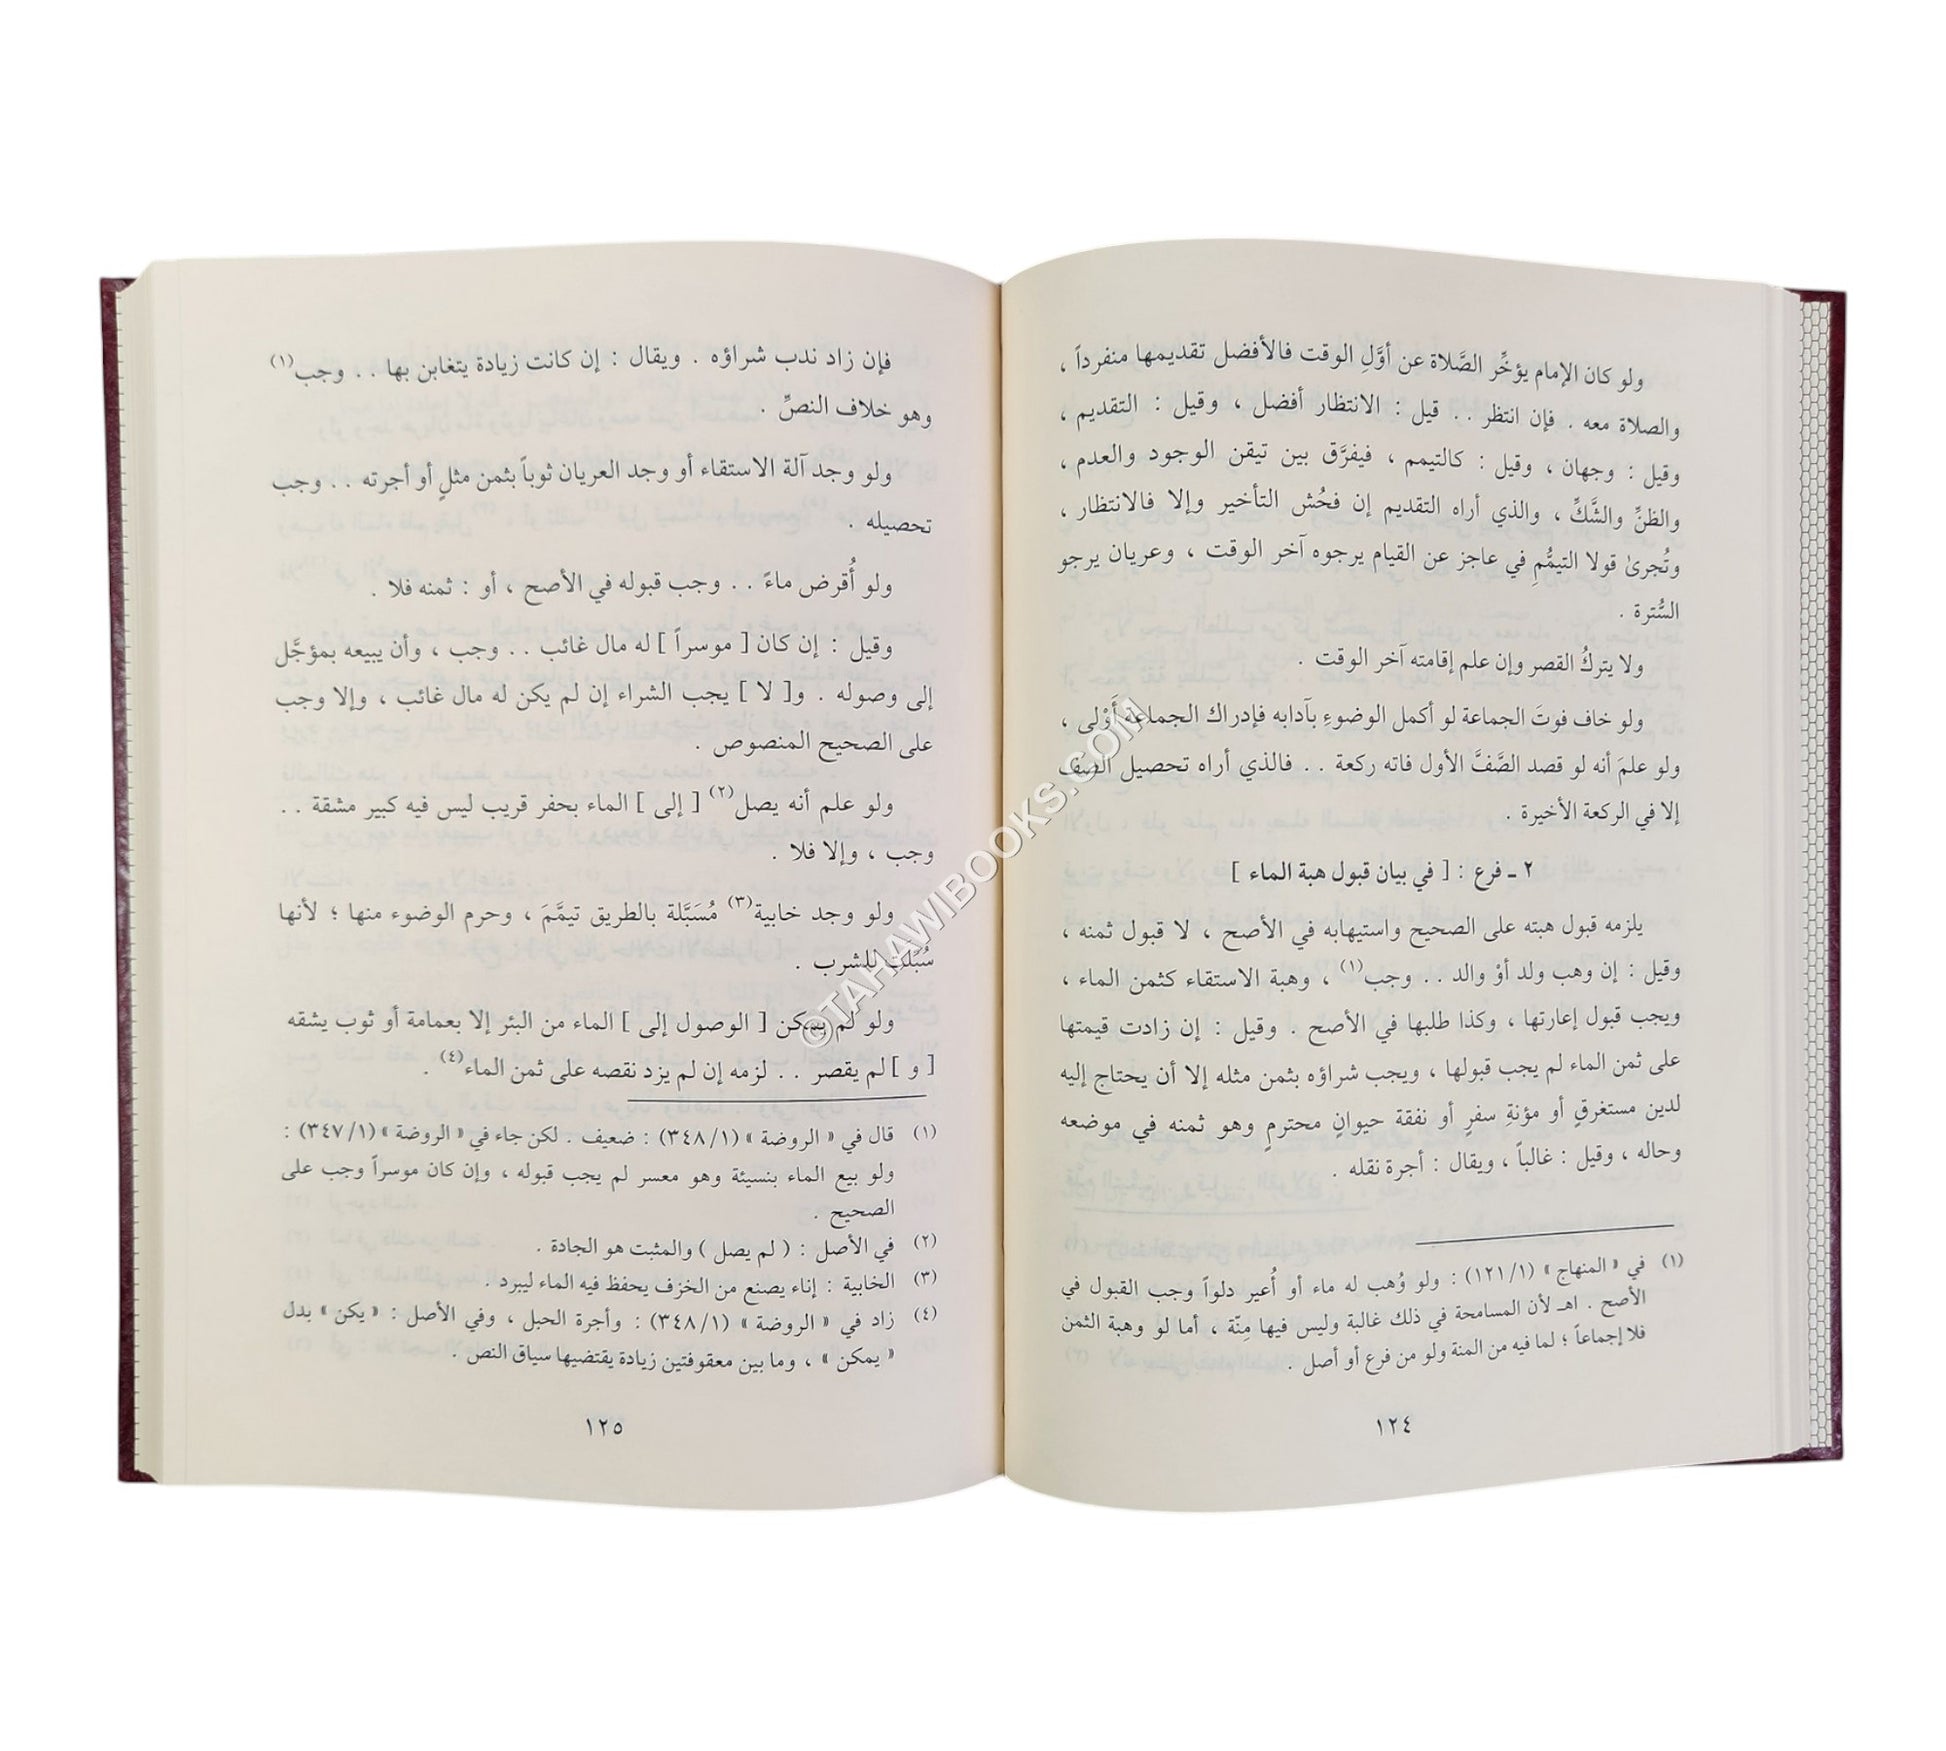 ولو كان الإمام يؤخِّر الصَّلاة عن أوَّلِ الوقت فالأفضل تقديمها منفرداً ،
والصلاة معه . فإن انتظر . . قيل : الانتظار أفضل ، وقيل : التقديم ،
وقيل : وجهان ، وقيل : كالتيمم ، فيفرَّق بين تيقن الوجود والعدم ،
والظنِّ والشَّكِّ ، والذي أراه التقديم إن فحُش التأخير وإلا فالانتظار ،
وتُجرىٰ قولا التيمُّمِ في عاجز عن القيام يرجوه آخر الوقت ، وعريان يرجو
السُّترة .
ولا يتركُ القصر وإن علم إقامته آخر الوقت .
ولو خاف فوتَ الجماعة لو أكمل الوضوءِ بآدابه فإدراك الجماعة أَوْلى ،
ولو علمَ أنه لو قصد الصَّفَّ الأول فاته ركعة . . فالذي أراه تحصيل الصف
إلا في الركعة الأخيرة .
٢ ـ فرع : [ في بيان قبول هبة الماء ]
يلزمه قبول هبته على الصحيح واستيهابه في الأصح ، لا قبول ثمنه ،
وقيل : إن وهب ولد أوْ والد . . وجب(١) ، وهبة الاستقاء كثمن الماء ،
ويجب قبول إعارتها ، وكذا طلبها في الأصح . وقيل : إن زادت قيمتها
على ثمن الماء لم يجب قبولها ، ويجب شراؤه بثمن مثله إلا أن يحتاج إليه
لدين مستغرقٍ أو مؤنةِ سفرٍ أو نفقة حيوانٍ محترمٍ وهو ثمنه في موضعه
وحاله ، وقيل : غالباً ، ويقال : أجرة نقله .
(١) في « المنهاج » (١/ ١٢١) : ولو وُهب له ماء أو أُعير دلواً وجب القبول في
الأصح . اهـ لأن المسامحة في ذلك غالبة وليس فيها مِنّة ، أما لو وهبة الثمن
فلا إجماعاً ؛ لما فيه من المنة ولو من فرع أو أصل .
١٢٤
فإن زاد ندب شراؤه . ويقال : إن كانت زيادة يتغابن بها . . وجب(١)
وهو خلاف النصِّ .
ولو وجد آلة الاستقاء أو وجد العريان ثوباً بثمن مثلٍ أو أجرته . . وجب
تحصيله .
ولو أُقرض ماءً . . وجب قبوله في الأصح ، أو : ثمنه فلا .
وقيل : إن كان [ موسراً ] له مال غائب . . وجب ، وأن يبيعه بمؤجَّل
إلى وصوله . و[ لا ] يجب الشراء إن لم يكن له مال غائب ، وإلا وجب
على الصحيح المنصوص .
ولو علم أنه يصل(٢) [ إلى ] الماء بحفر قريب ليس فيه كبير مشقة . .
وجب ، وإلا فلا .
ولو وجد خابية(٣) مُسَبَّلة بالطريق تيمَّمَ ، وحرم الوضوء منها ؛ لأنها
سُبِّلت للشرب .
ولو لم يمكن [ الوصول إلى ] الماء من البئر إلا بعمامة أو ثوب يشقه
[ و ] لم يقصر . . لزمه إن لم يزد نقصه على ثمن الماء(٤) .
(١) قال في « الروضة » (١/ ٣٤٨) : ضعيف . لكن جاء في « الروضة » (١/ ٣٤٧) :
ولو بيع الماء بنسيئة وهو معسر لم يجب قبوله ، وإن كان موسراً وجب على
الصحيح .
(٢) في الأصل : ( لم يصل ) والمثبت هو الجادة .
(٣) الخابية : إناء يصنع من الخزف يحفظ فيه الماء ليبرد .
(٤) زاد في « الروضة » (١/ ٣٤٨) : وأجرة الحبل ، وفي الأصل : « يكن » بدل
« يمكن » ، وما بين معقوفتين زيادة يقتضيها سياق النص .
١٢٥
©TAHAWIBOOKS.COM